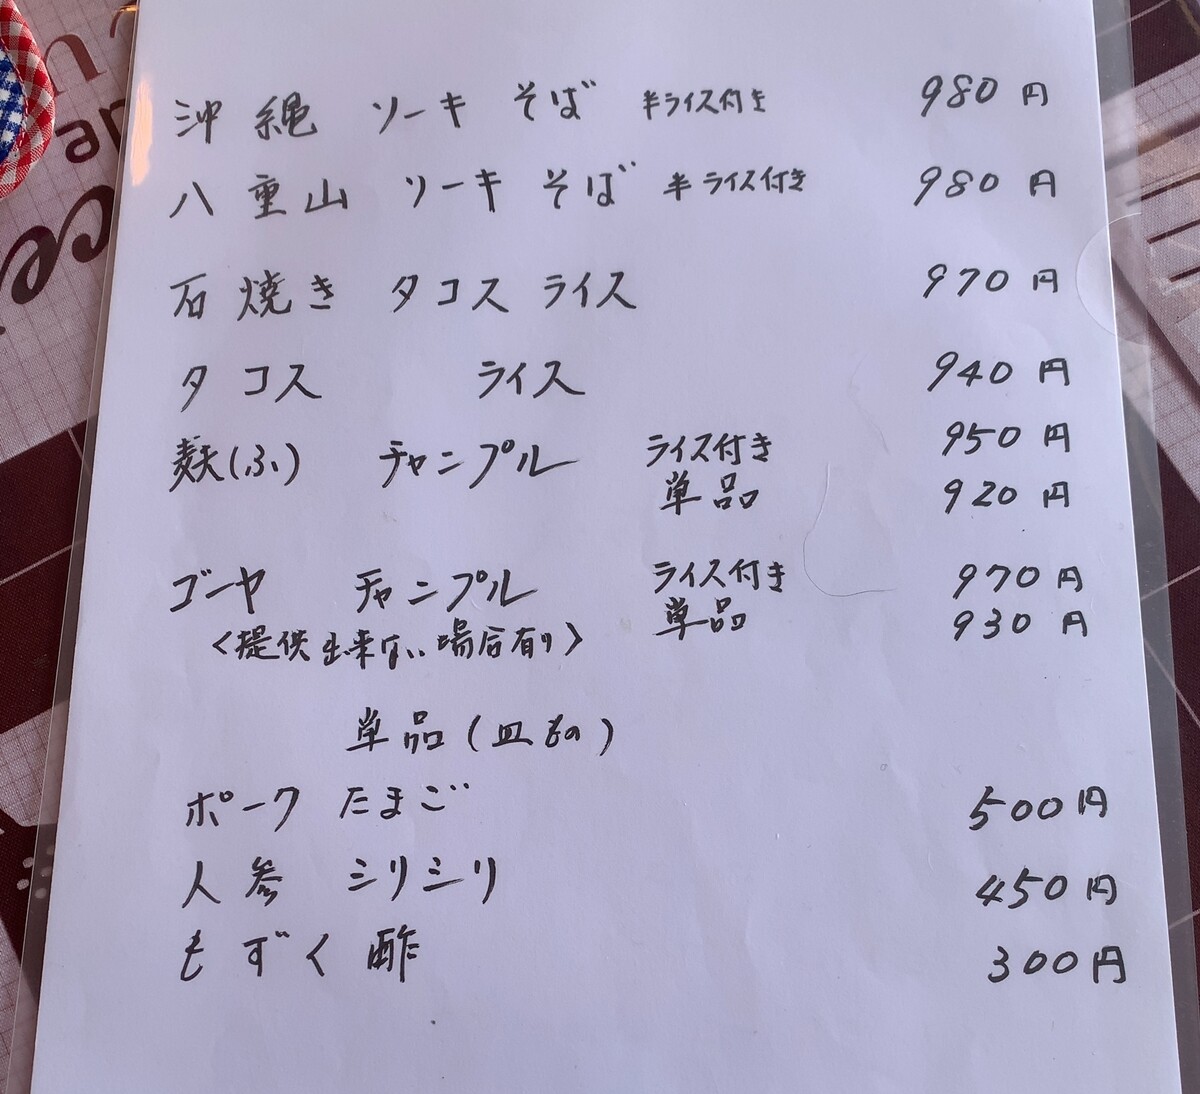 沖縄 ソーキ そば 半ライス付き 980円
八重山 ソーキ そば 半ライス付き 980円
石焼き タコス ライス 970円
タコス ライス 940円
麸(ふ) チャンプルー ライス付き 950円
単品 920円
ゴーヤ チャンプルー ライス付き 970円
<提供出来ない場合有り> 単品 930円
単品(皿もの)
ポーク たまご 500円
人参 シリシリ 450円
もずく 酢 300円